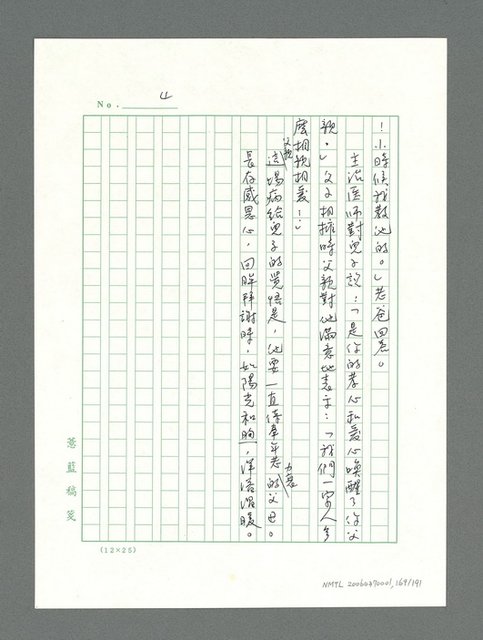 No. 4
！小時候我教他的。」老爸回答。
主治医师對兒子說：「是你的孝心和爱心喚醒了你父
親。」父子相擁時父親對他滿意地表示：「我們一家人多
麼相親相爱…」
這場病給兒子的覺悟是，他要一直侍奉年老的父母。
父親
長存感恩心，回眸拜謝時，如陽光和煦，洋溢溫暖。
薔藍稿箋
(12×25)
NMTL 20060470001_169/191